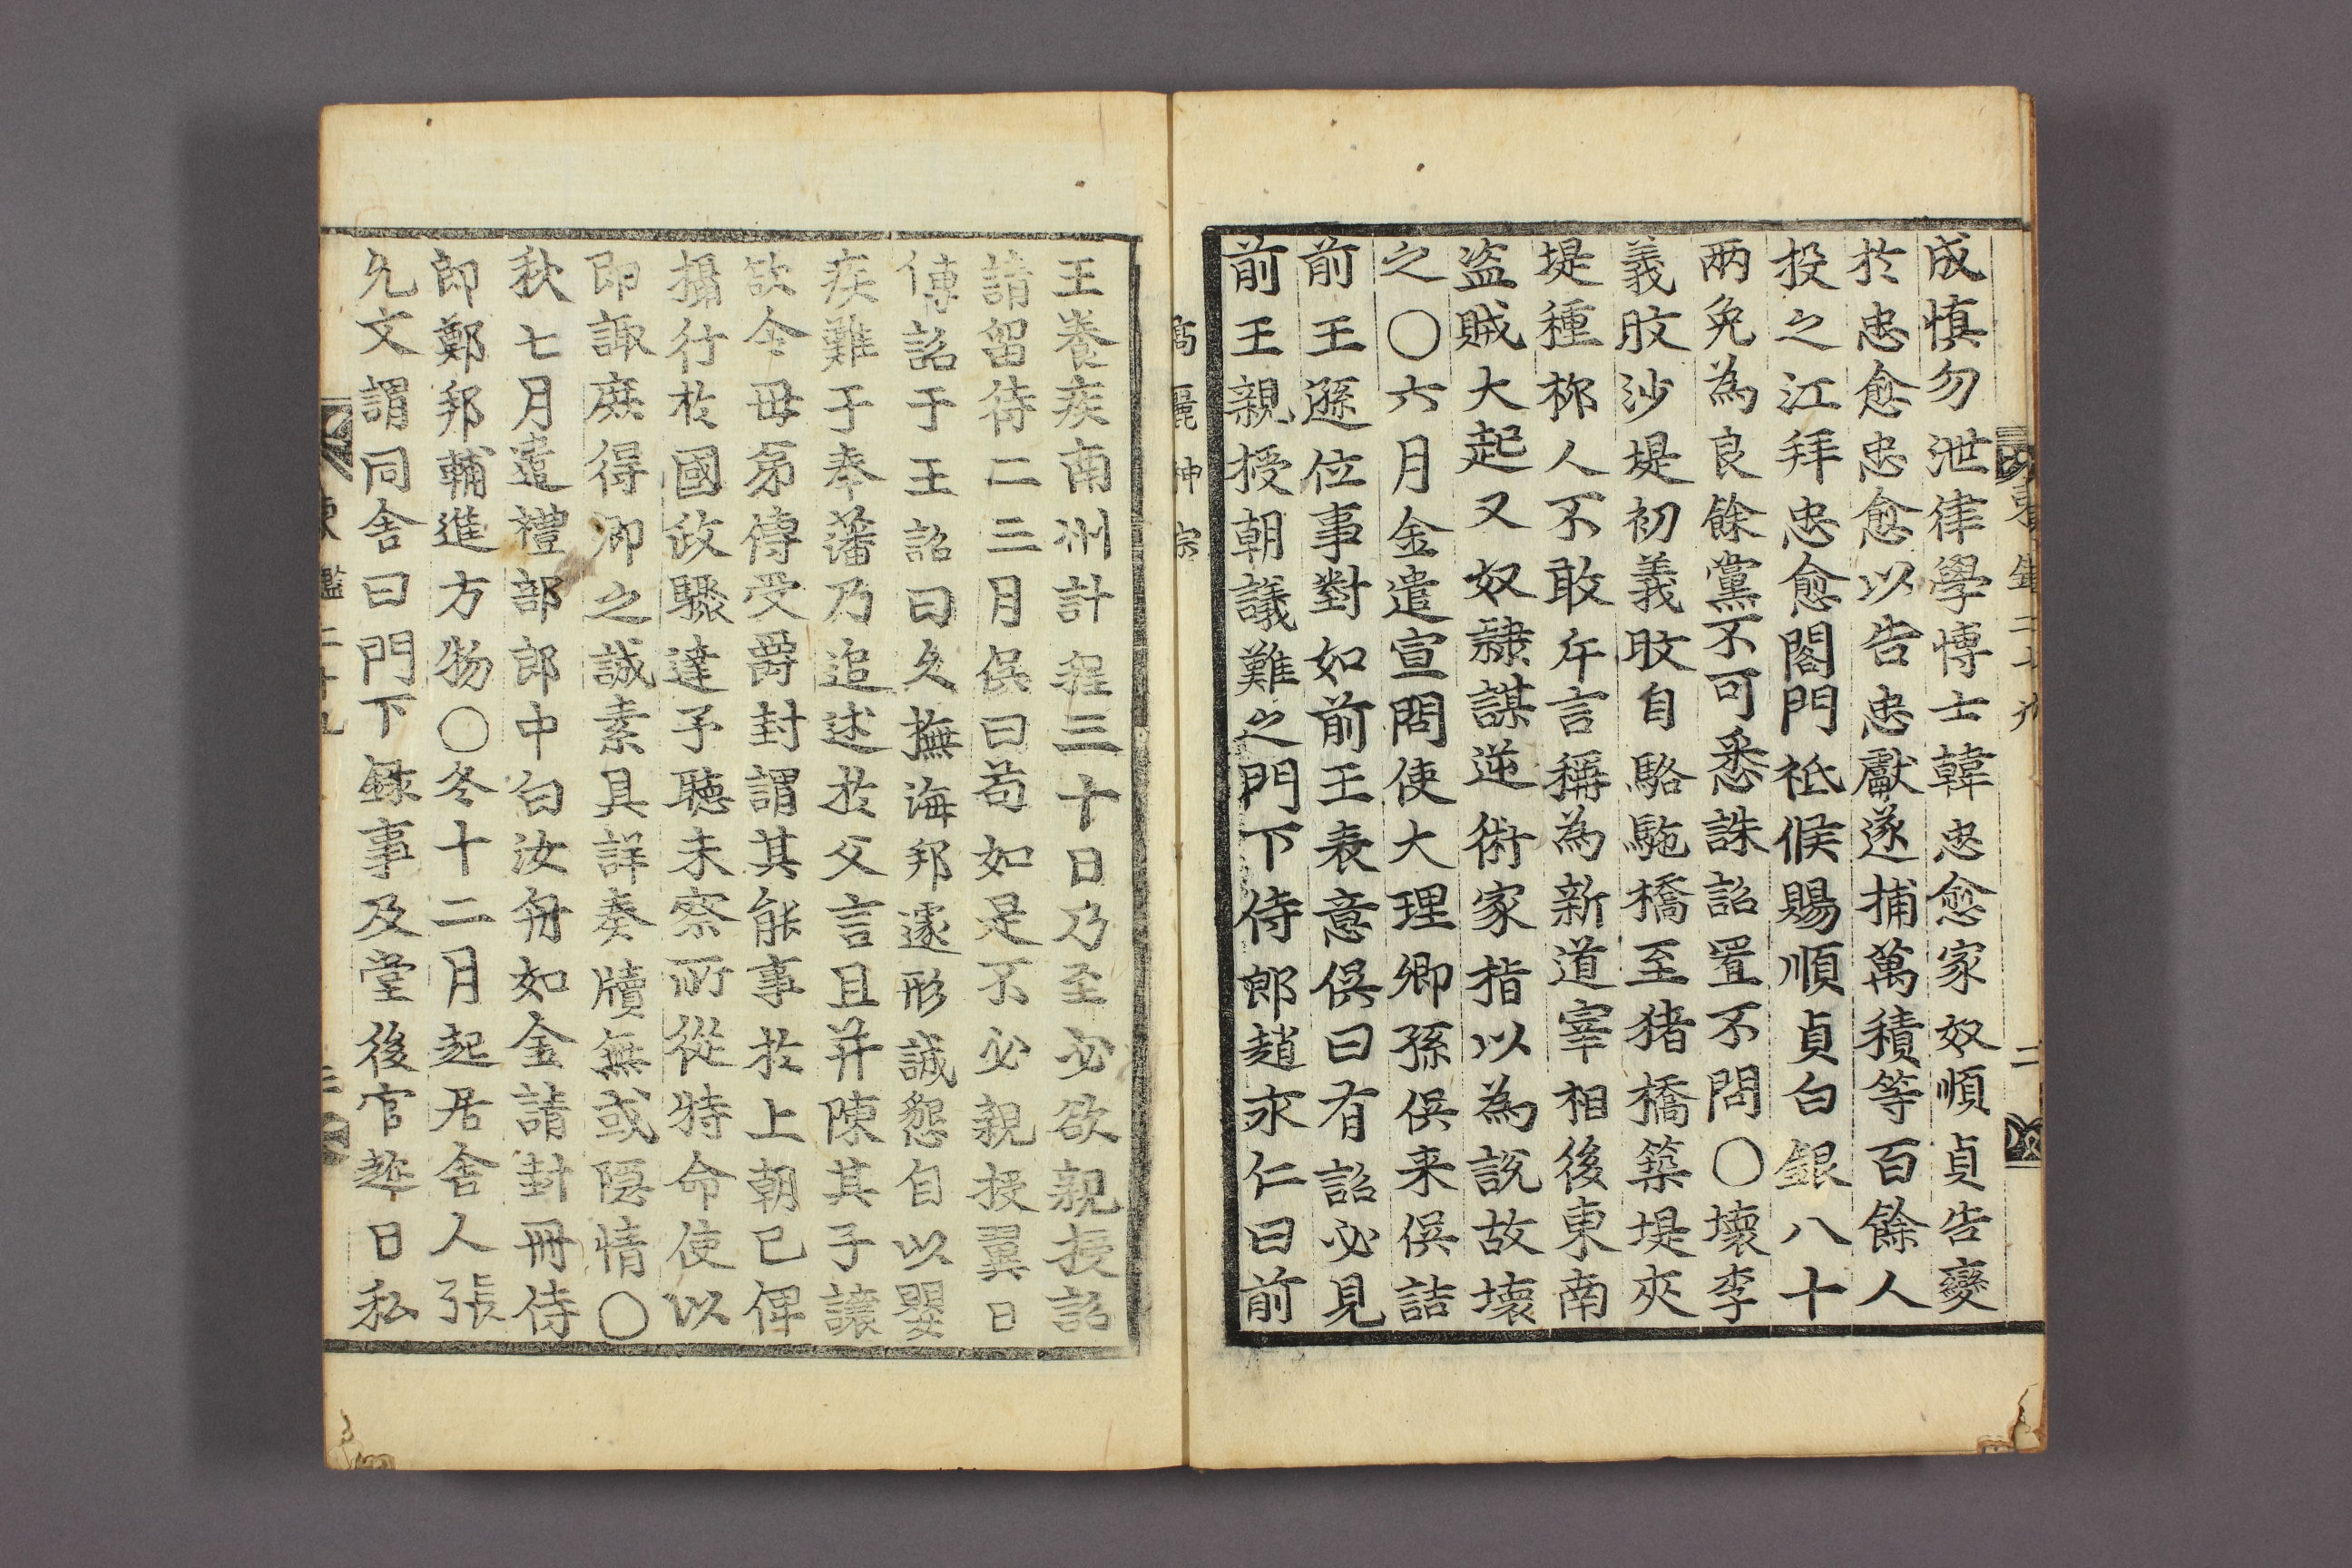 成慎勿泄律學博士韓忠愈家奴順貞告變
扵忠愈忠愈以告忠獻遂捕萬積等百餘人
投之江拜忠愈閤門祗候賜順貞白銀八十
两免為良餘黨不可悉誅詔置不問○壞李
義旼沙堤初義旼自駱駞橋至猪橋築堤夾
堤種桞人不敢斥言稱為新道宰相後東南
盗賊大起又奴隷謀逆術家指以為說故壞
之○六月金遣宣問使大理卿孫俣来俣詰
前王遜位事對如前王表意俣曰有詔必見
前王親授朝議難之門下侍郎趙永仁曰前
高麗神宗
王養疾南州計程三十日乃至必欲親授詔
請留待二三月俣曰苟如是不必親授翼日
傳詔于王詔曰久撫海邦遽形誠怨自以嬰
疾難于奉藩乃追述扵父言且并陳其子讓
欲令毋弟傳受爵封謂其能事扵上朝已俾
攝行扵國政驟達予聴未察所從特命使以
即諏庶得卿之誠素具詳奏牘無或隠情○
秋七月遣禮部郎中白汝舟如金請封冊侍
郎鄭邦輔進方物○冬十二月起居舍人張
允文謂同舍曰門下録事及堂後官趂日私